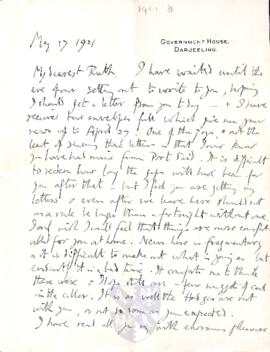 1921 B
GOVERNMENT HOUSE,
DARJEELING.
May 17 1921
My dearest Ruth I have waited until the
eve of our setting out to write to you, hoping
I should get a letter from you to day — & I have
received two envelopes full which give me your
news up to April 27. One of the joys & not the
least of seeing these letters is that I now know
you have had mine from Port Said. It is difficult
to reckon how long the gaps will have been for
you after that but I feel you are getting my
letters & even after we leave here should not
as a rule be longer than a fortnight without one.
I only wish I could feel that things are more comfort-
able for you at home. News here is fragmentary
& it is difficult to make out what is going on but
evidently it is a bad time. It comforts me to think
there were & I hope still are a few nuggets of coal
in the cellar. It is as well the are not
with you, or not so soon as you expected.
I have read all your with enormous pleasure